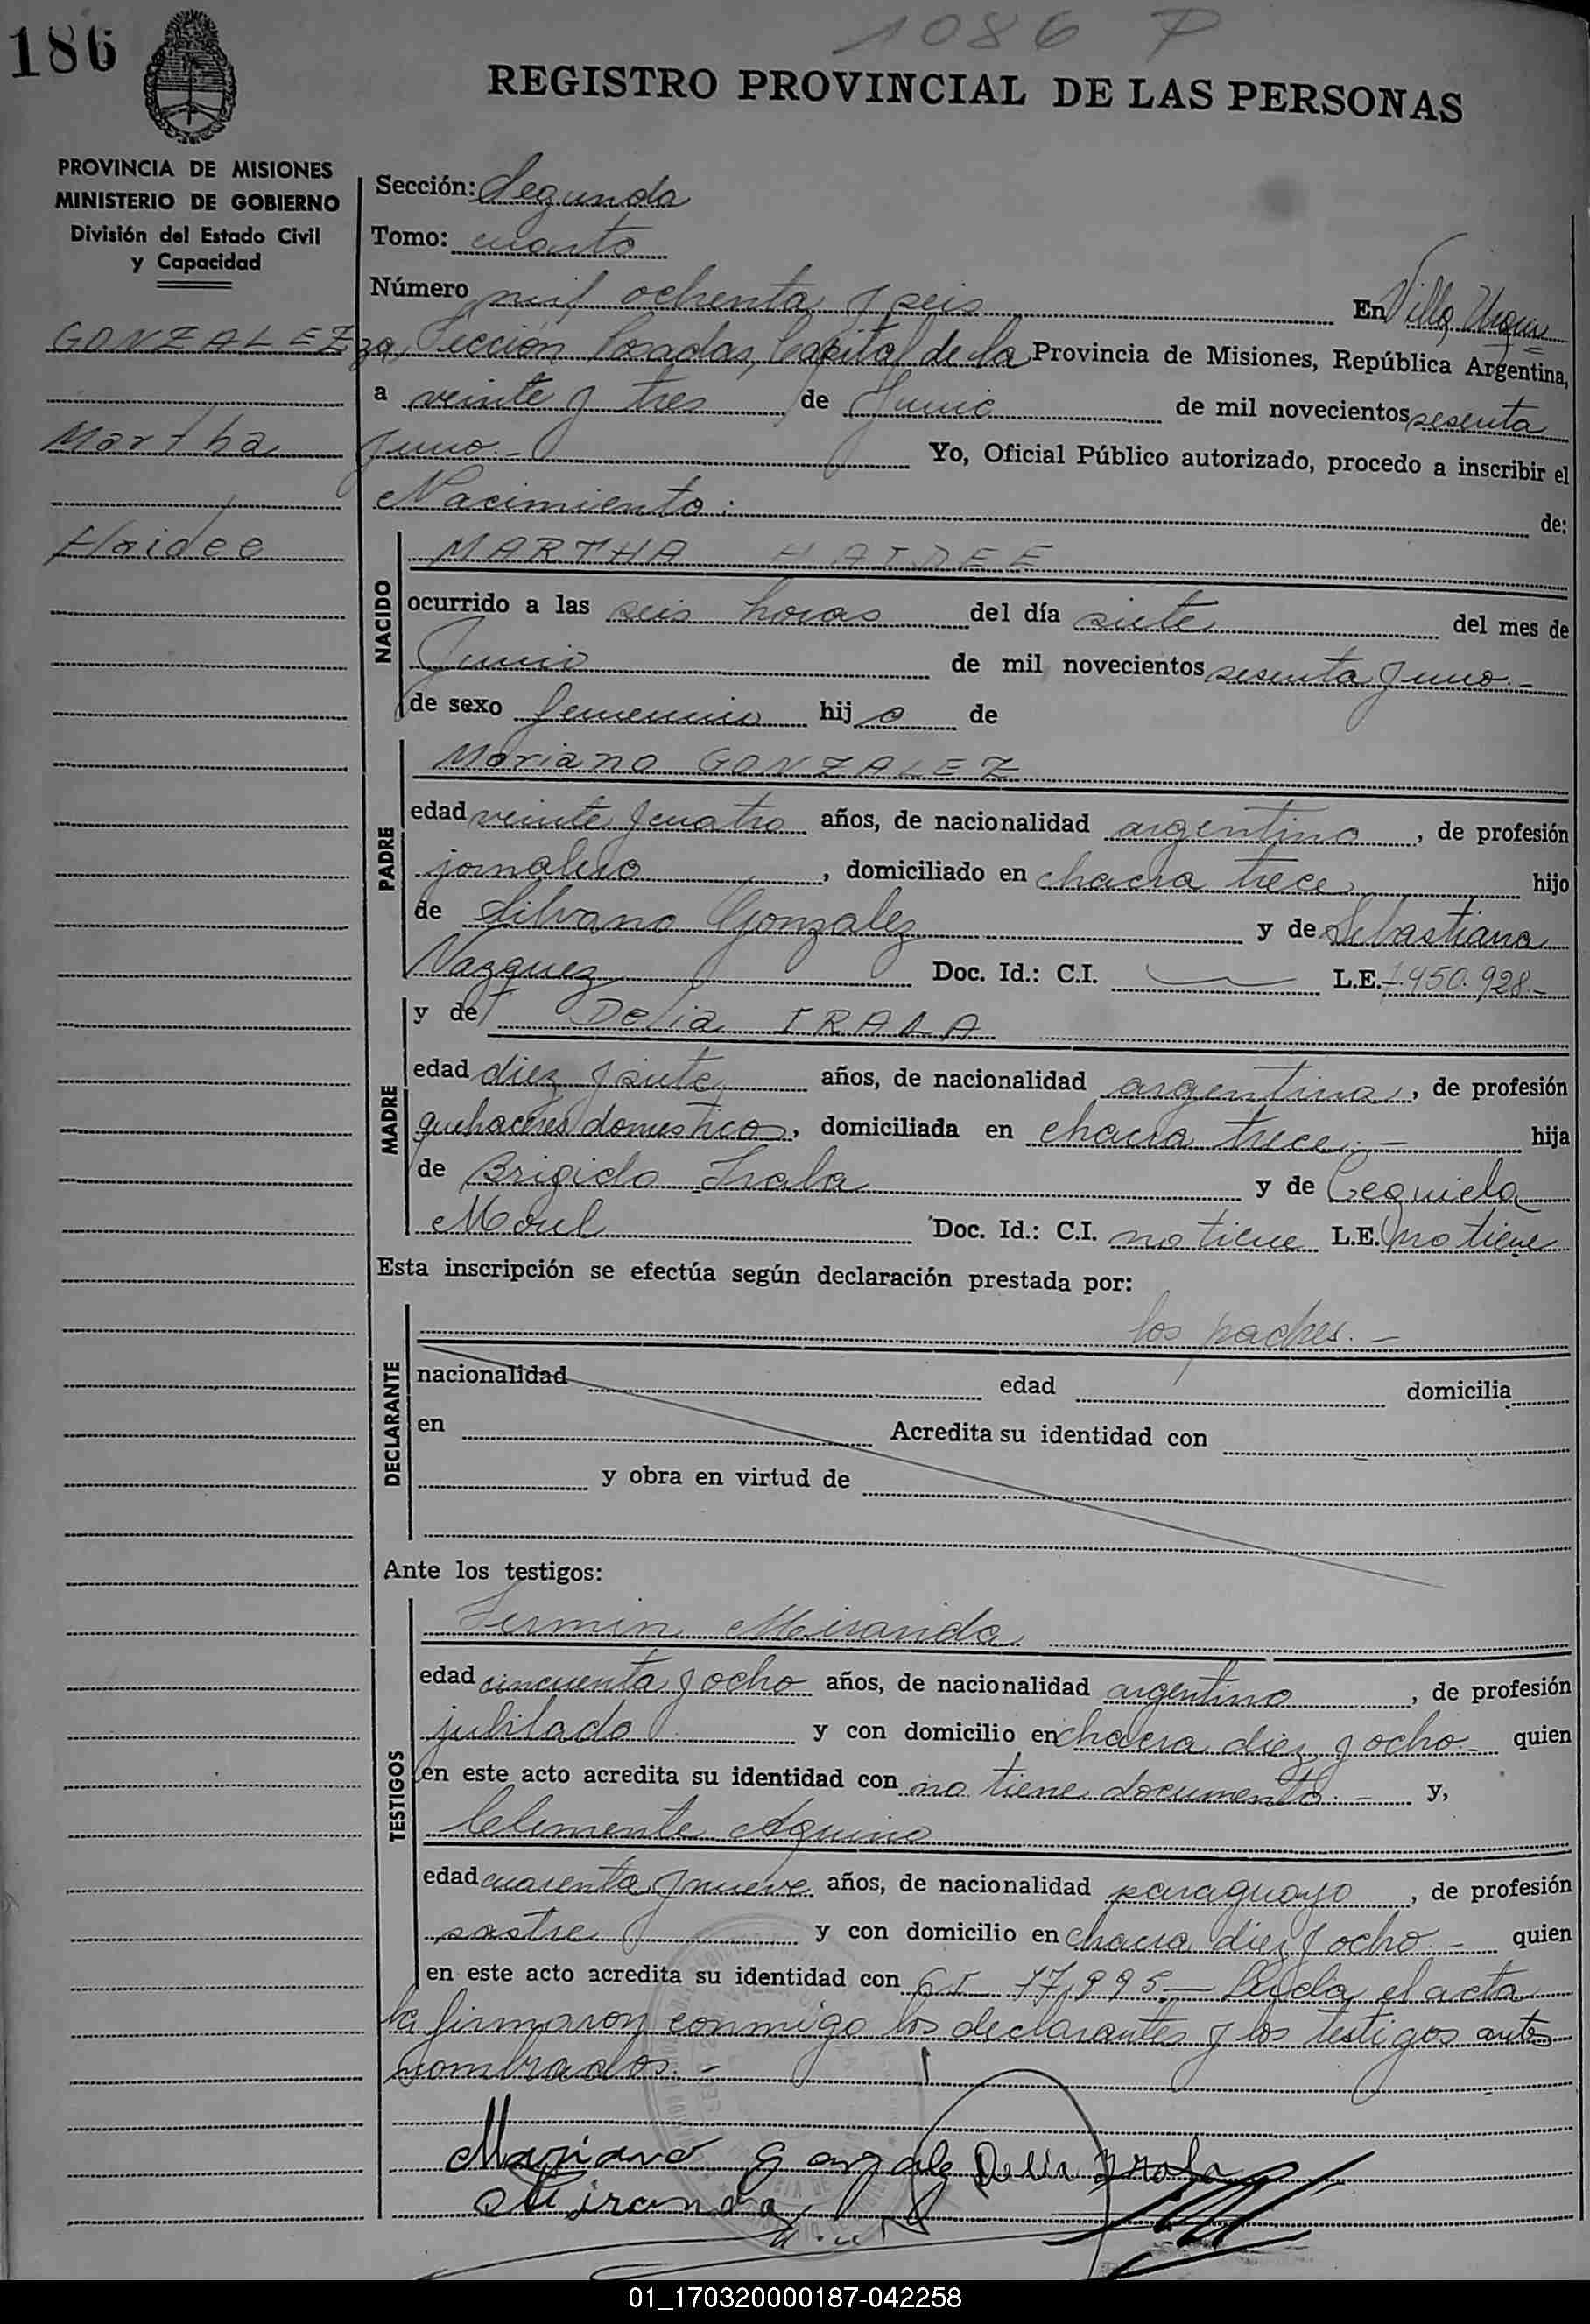 186
1086 P
REGISTRO PROVINCIAL DE LAS PERSONAS
PROVINCIA DE MISIONES
MINISTERIO DE GOBIERNO
División del Estado Civil
y Capacidad
GONZALEZ
Martha
Haidee
Sección: Segunda
Tomo: cuarto
Número mil ochenta y seis En Villa Urqui
za, Sección Posadas, Capital de la Provincia de Misiones, República Argentina,
a veinte y tres de Junio de mil novecientos sesenta
y uno.- Yo, Oficial Público autorizado, procedo a inscribir el
Nacimiento: de:
NACIDO
MARTHA HAIDEE
ocurrido a las seis horas del día siete del mes de
Junio de mil novecientos sesenta y uno.-
de sexo femenino hija de
PADRE
Mariano GONZALEZ
edad veinte y cuatro años, de nacionalidad argentino, de profesión
jornalero, domiciliado en chacra trece hijo
de Silvano Gonzalez y de Sebastiana
Vazquez Doc. Id.: C.I. L.E. 7.450.928.-
MADRE
y de Delia IRALA
edad diez y siete años, de nacionalidad argentina, de profesión
quehaceres domesticos, domiciliada en chacra trece.- hija
de Brigido Irala y de
Doc. Id.: C.I. no tiene L.E. no tiene
Esta inscripción se efectúa según declaración prestada por:
DECLARANTE
los padres.-
nacionalidad edad domicilia
en Acredita su identidad con
y obra en virtud de
Ante los testigos:
TESTIGOS
Fermin Miranda
edad cincuenta y ocho años, de nacionalidad argentino, de profesión
jubilado y con domicilio en chacra diez y ocho.- quien
en este acto acredita su identidad con no tiene documento.- y,
Clemente Aquino
edad cuarenta y nueve años, de nacionalidad paraguayo, de profesión
sastre y con domicilio en chacra diez y ocho.- quien
en este acto acredita su identidad con CI 17.995.- Leida el acta
la firmaron conmigo los declarantes y los testigos antes
nombrados.-
Mariano Gonzalez Delia Irala
Miranda
01_170320000187-042258